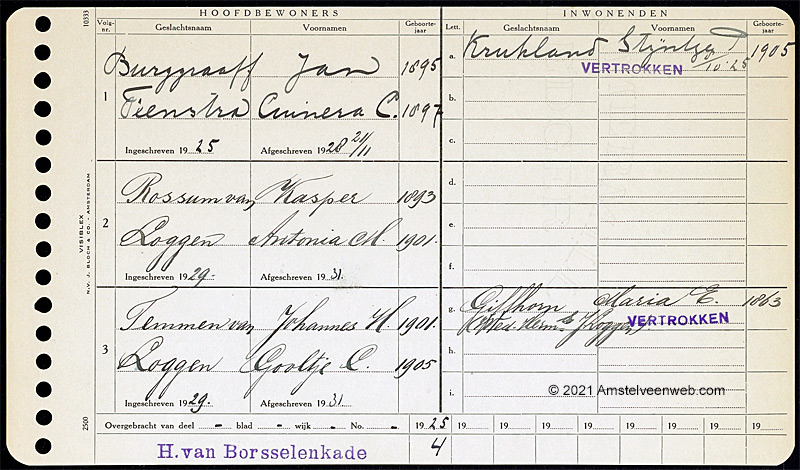 HOOFDBEWONERS
INWONENDEN
10333
Volg-nr.
Geslachtsnaam
Voornamen
Geboorte-jaar
Lett.
Geslachtsnaam
Voornamen
Geboorte-jaar
1
Burggraaff Jan 1895
Feenstra C. 1897
Ingeschreven 1925 Afgeschreven 1928 21/11
2
Rossum van Kasper 1893
Loggen Antonia M. 1901.
Ingeschreven 1929. Afgeschreven 1931.
3
Temmen van Johannes H. 1901.
Loggen Gooltje C. 1905
Ingeschreven 1929. Afgeschreven 1931.
a. Krukland 1905
VERTROKKEN /10-25
b.
c.
d.
e.
f.
g. Gifhorn Maria E. 1863
(Wed. Herm. Loggen)
VERTROKKEN
h.
i.
© 2021 Amstelveenweb.com
VISIBLEX
N.V. J. BLOCH & CO. - AMSTERDAM
2500
Overgebracht van deel - blad - wijk - No. - 1925 19 19 19 19 19 19 19 19
H. van Borsselenkade 4